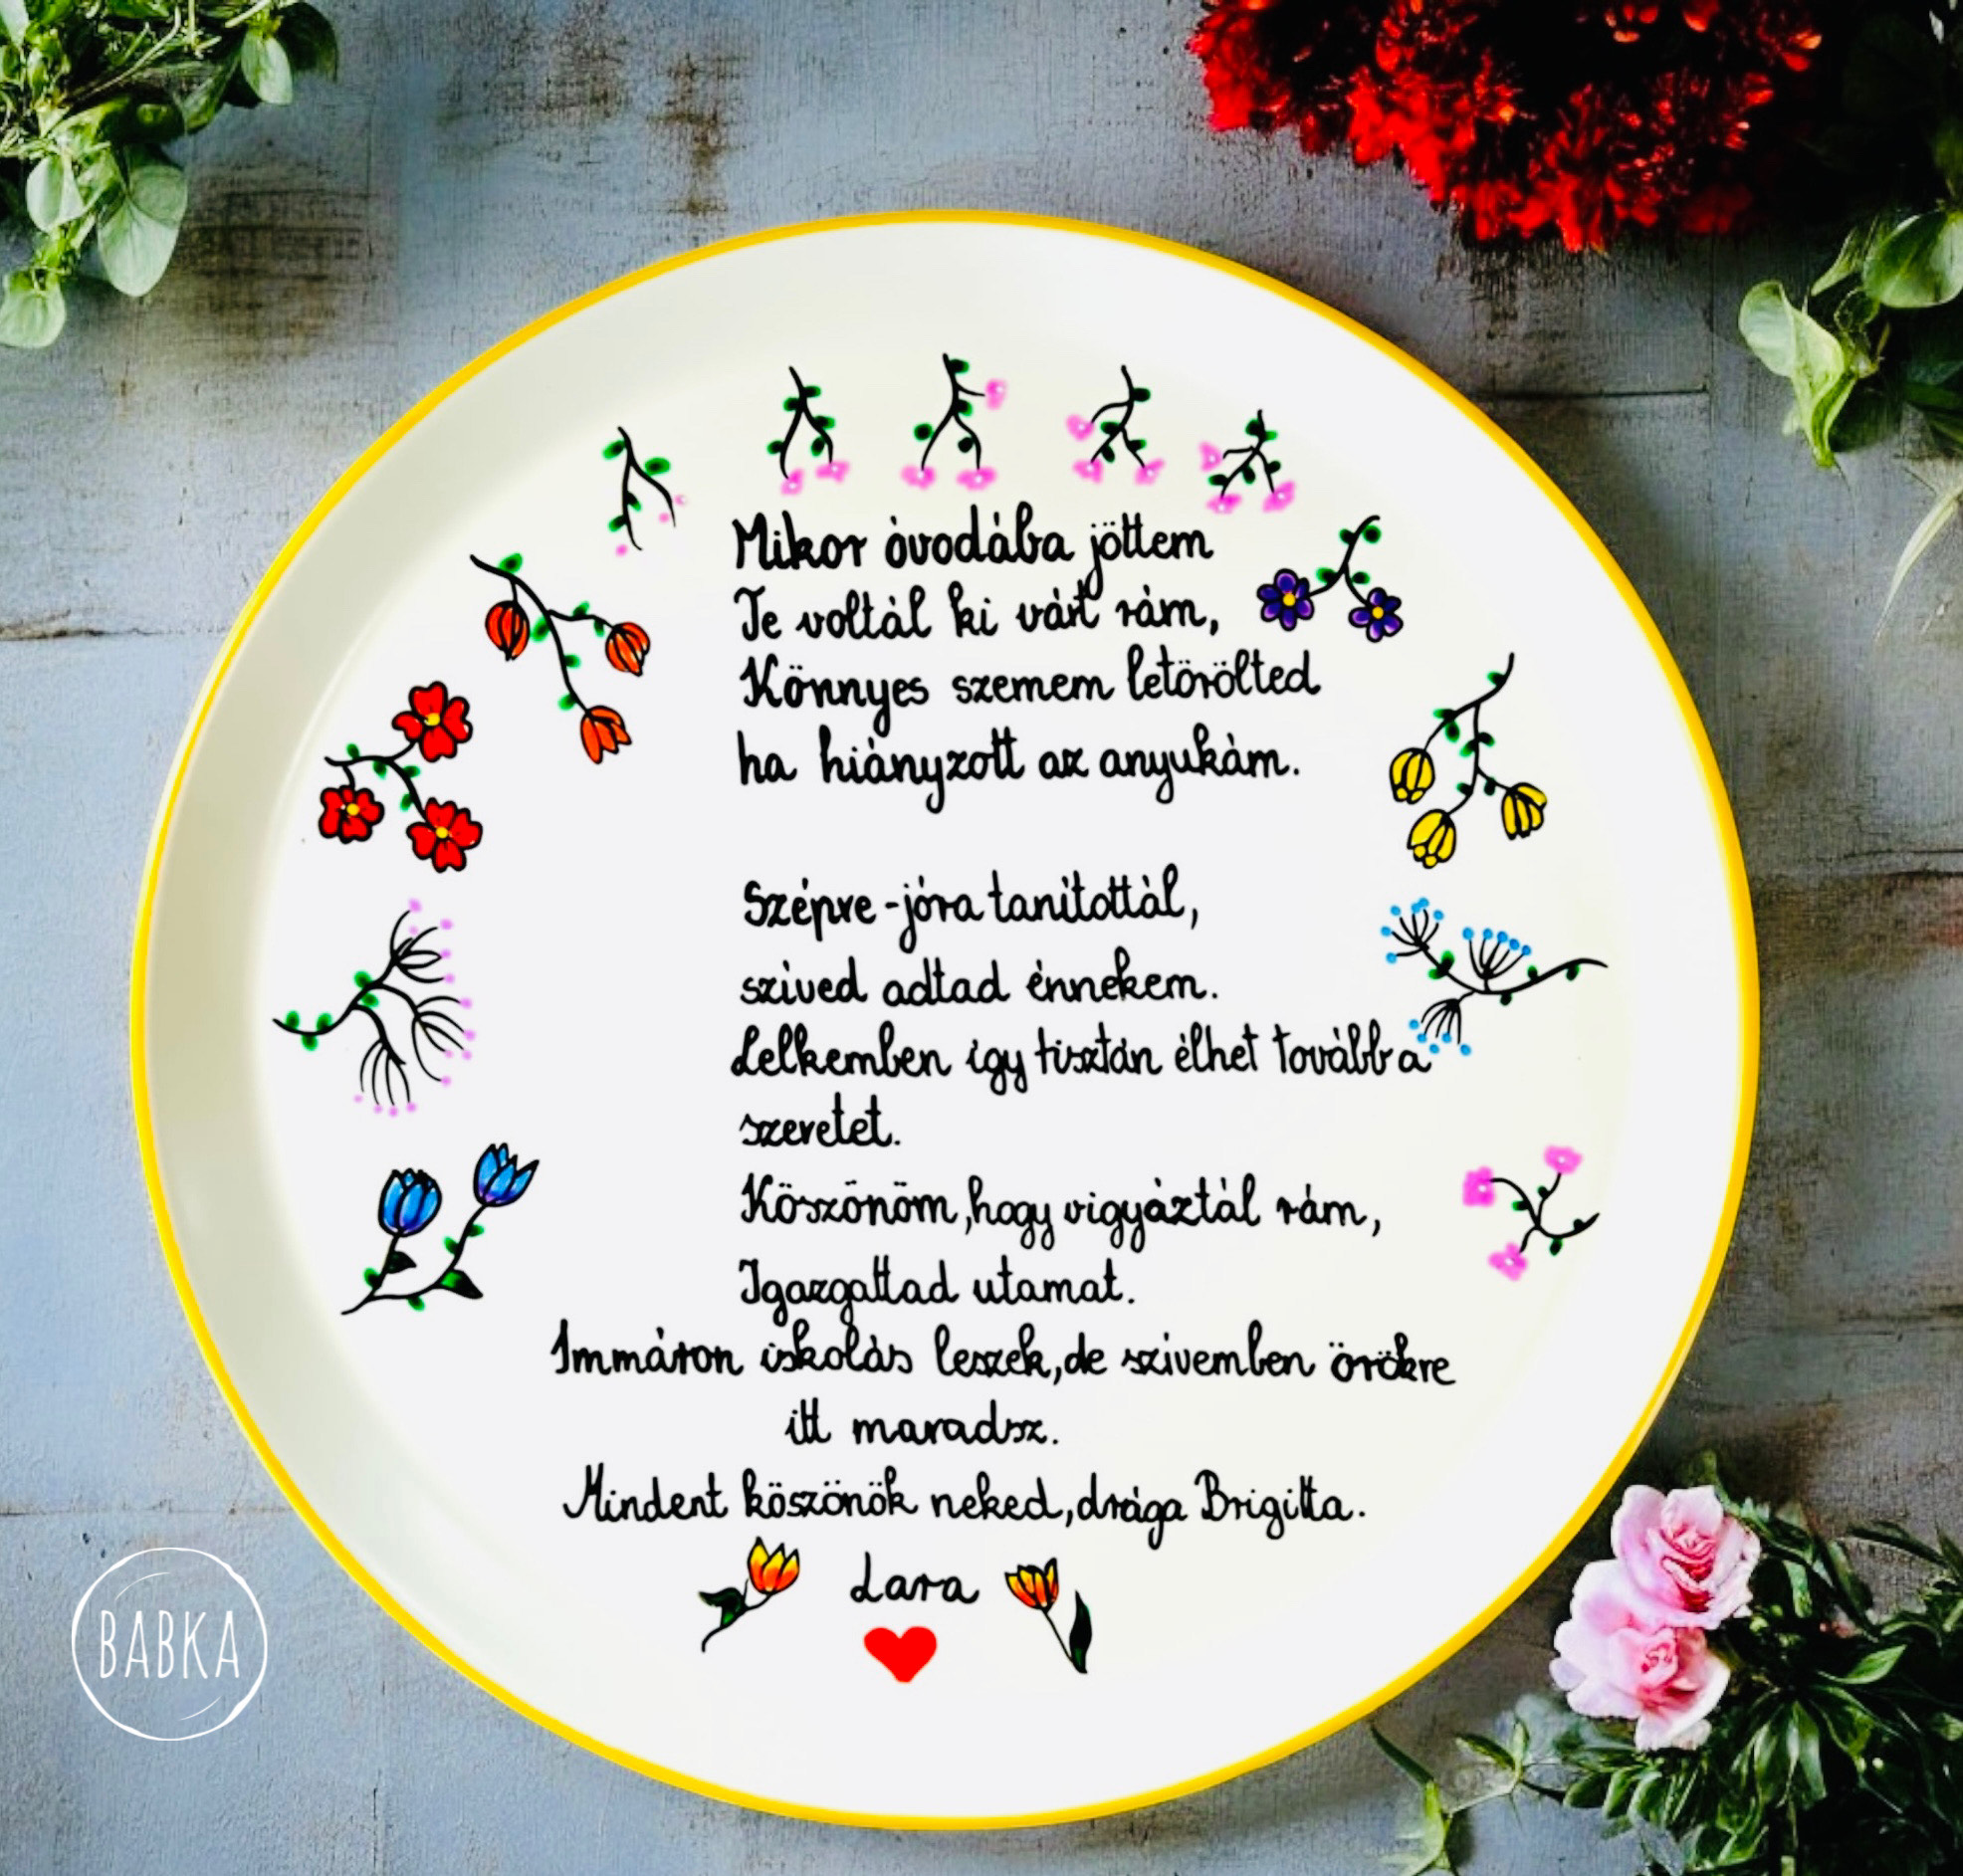 Mikor óvodába jöttem
Te voltál ki várt rám,
Könnyes szemem letörölted
ha hiányzott az anyukám.
Szépre-jóra tanítottál,
szived adtad énnekem.
Lelkemben így tisztán élhet tovább a
szeretet.
Köszönöm, hogy vigyáztál rám,
Igazgattad utamat.
Immáron iskolás leszek, de szivemben örökre
itt maradsz.
Mindent köszönök neked, drága Brigitta.
Lara
BABKA